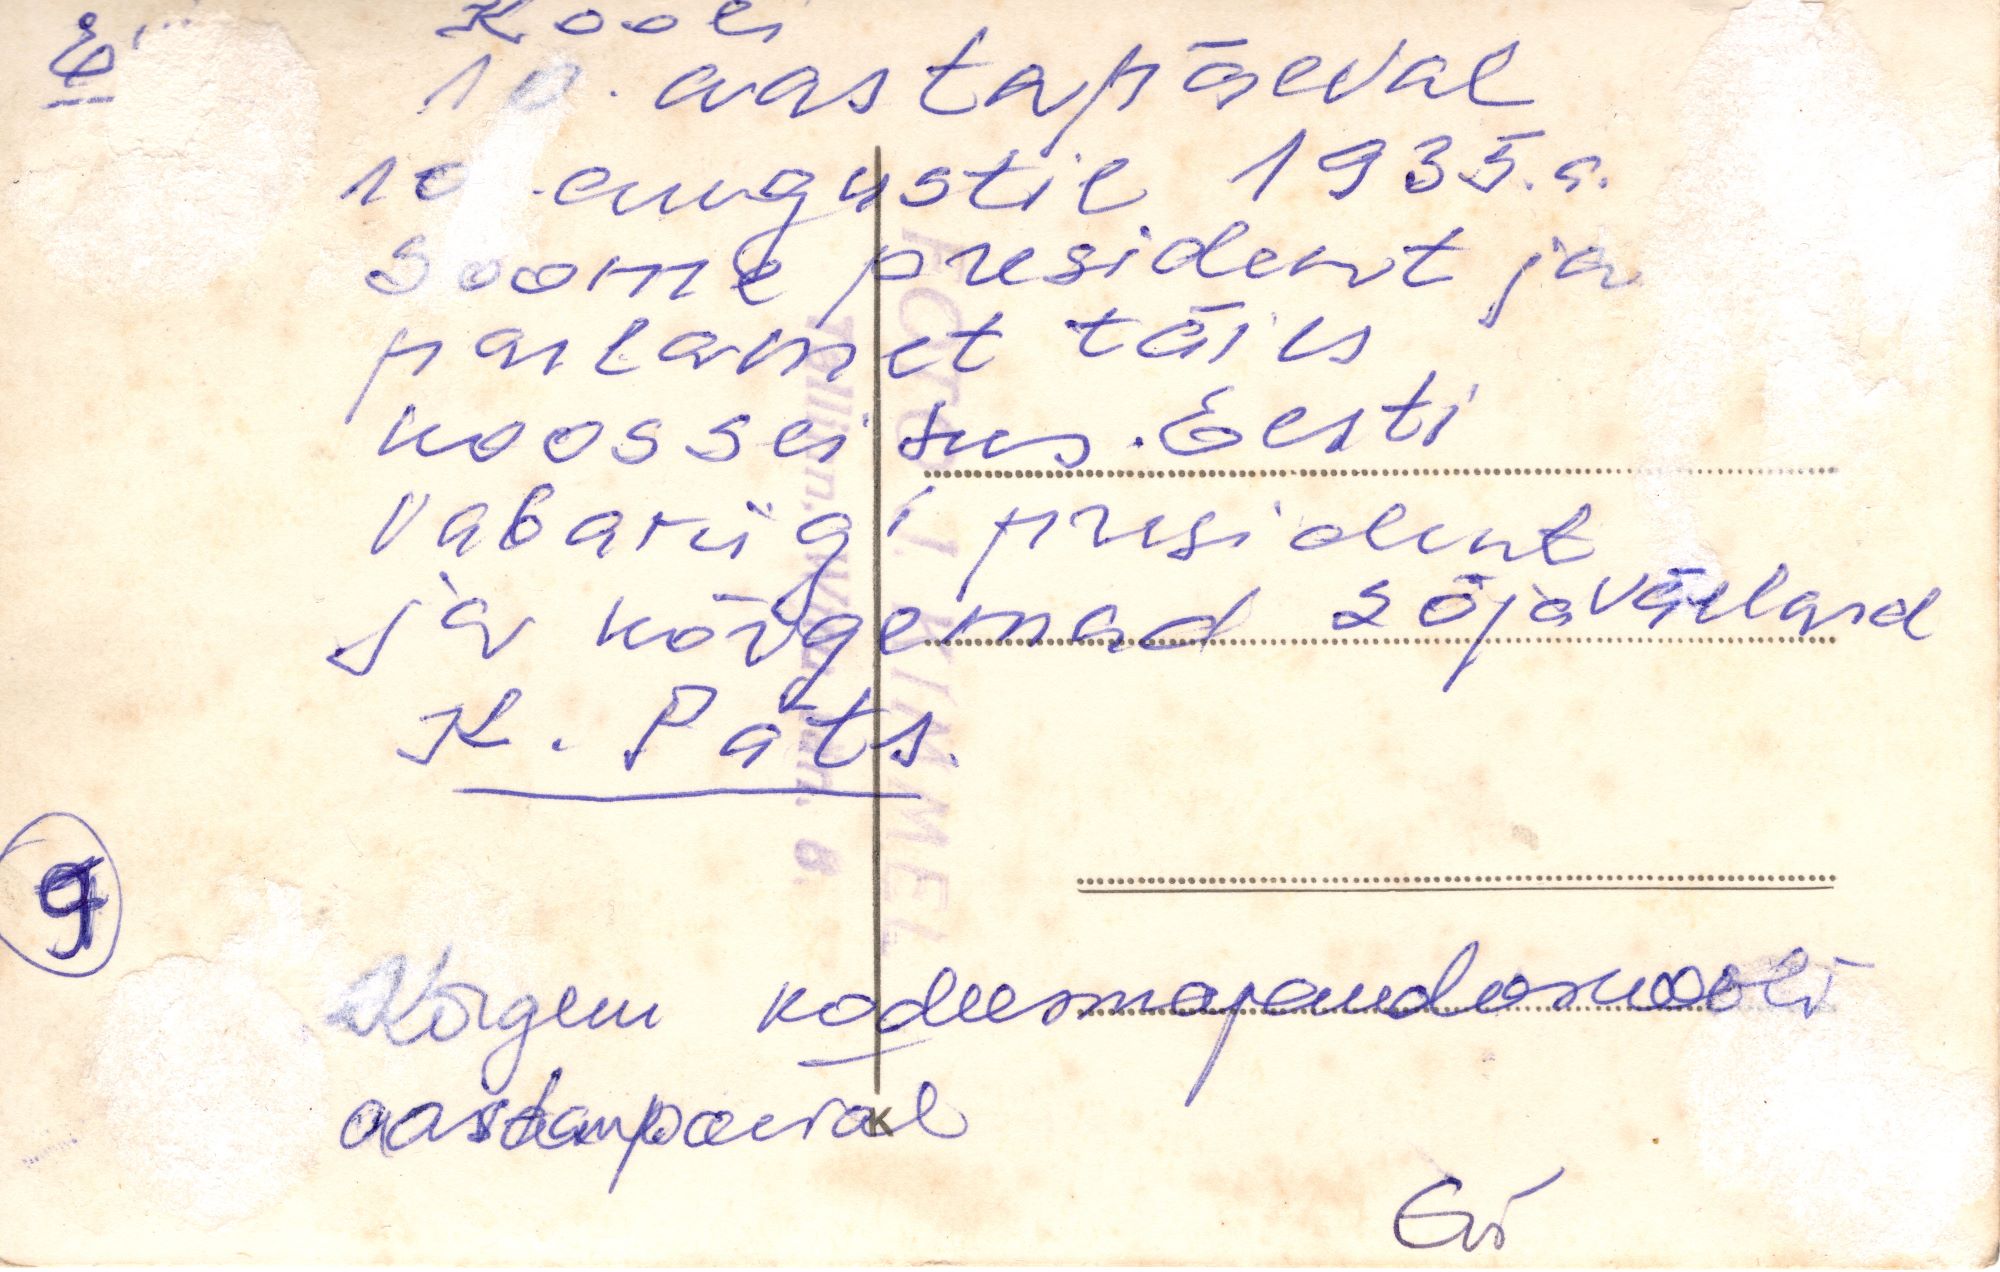 Kooli
10. aastapäeval
10. augustil 1935.a.
Soome president ja
parlamet täies
koosseisus. Eesti
Vabariigi president
ja kõrgemad sõjaväelased
K. Päts.
9
Kõrgem kodumajanduskooli
aastapäeval
FOTO J. KIMMEL
Tallinn,
8.
K